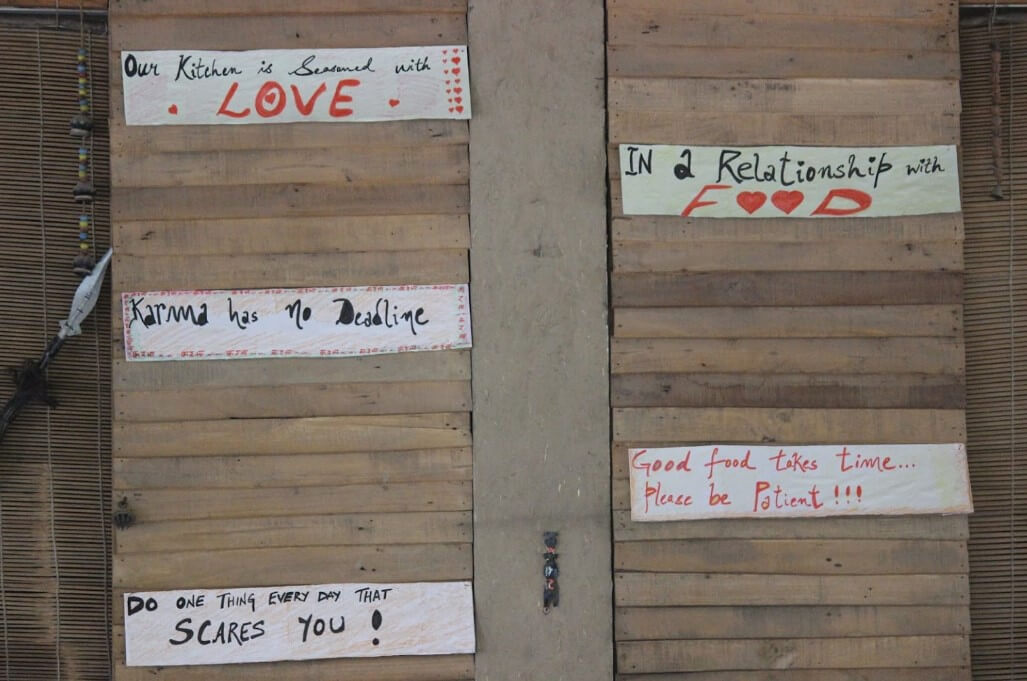 Our Kitchen is Seasoned with
LOVE
Karma has no Deadline
DO ONE THING EVERY DAY THAT
SCARES YOU !
IN a Relationship with
F♥♥D
Good food takes time...
Please be Patient !!!